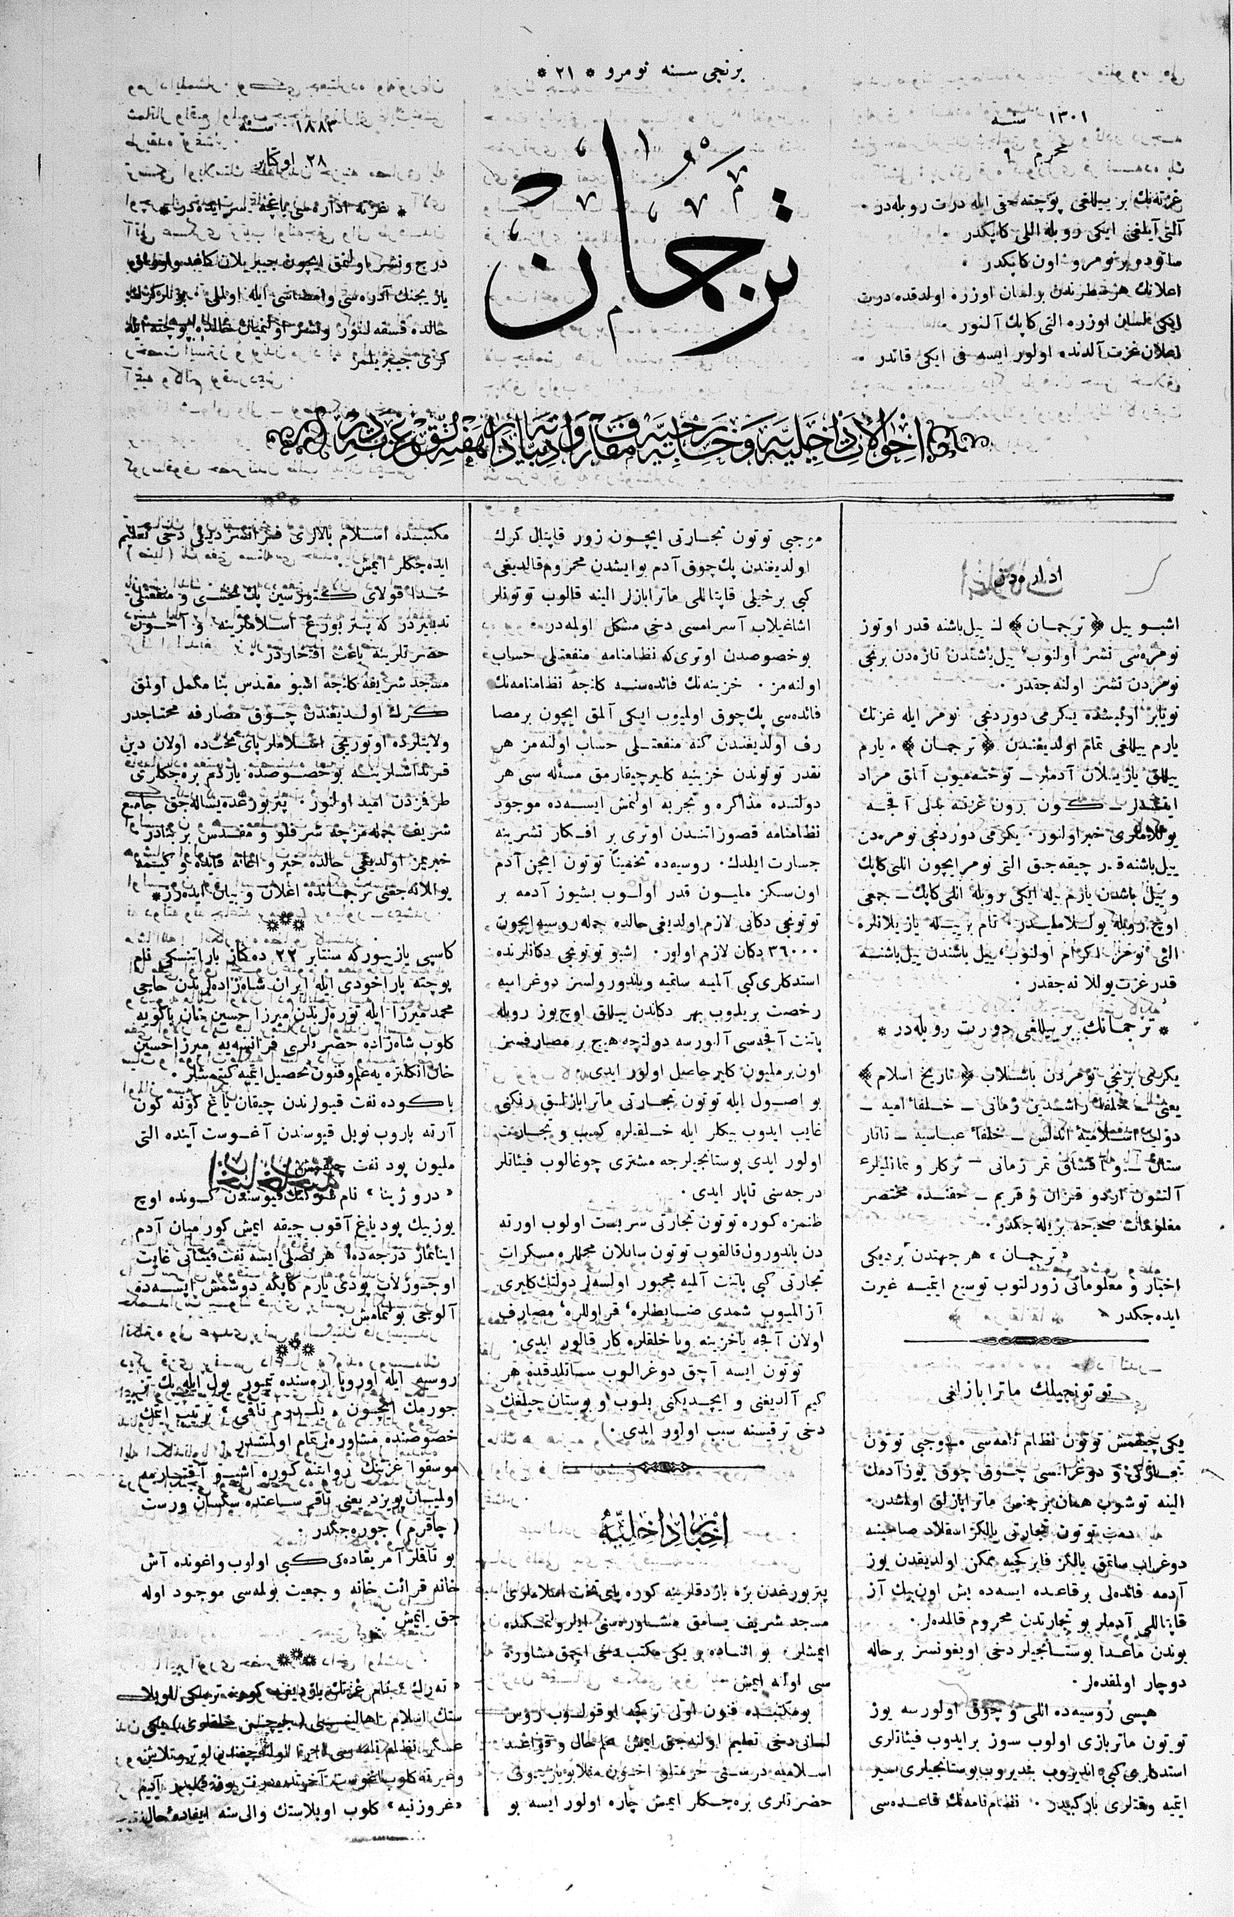 برنجی سنه نومرو * ٢١ *
١٣٠١ سنه
محرم ٩
غزته‌نك بر ییللغی پوچته حقی ایله درت روبله‌در ٠
آلتی آیلغی ایکی روبله اللی کاپکدر
صاتوده بر نومرو اون کاپکدر ٠
اعلانك هر سطرندن بر لسان اوزره اولدقده درت
ایکی لسان اوزره التی کاپك آلنور
اعلان غزت آلدنده اولور ایسه فی ایکی قاتدر ٠
ترجمان
١٨٨٣ سنه
٢٨ اوکتابر
* غزته اداره‌سی باغچه سرایده‌در *
درج و نشر اولنمق ایچون جیبریلان کاغد و اوراق
یازیجینك آدره‌سی و امضاسی ایله اولملی ٠ بونلر کرك
حالده قسقه لنور ونشر اولنمیان حالده پوچته ایله
کری جیبریلمز
ادارەدن
اشبو ییل ﴿ ترجمان ﴾ لك ییل باشنه قدر اوتوز
نومره‌سی نشر اولنوب ییل باشندن تازه‌دن برنجی
نومردن نشر اولنه جقدر ٠
نویابر اولنشده یکرمی دوردنجی نومر ایله غزتك
یارم ییللغی تمام اولدیغندن ﴿ ترجمان ﴾ ه یارم
ییللق یازیلان آدملر — توخته‌میوب آلمق مراد
ایدسه‌لر — کون رون غزته بدلی آقچه
یوللاملری خبر اولنور ٠ یکرمی دوردنجی نومره‌دن
ییل باشنه قدر چیقه جق التی نومر ایچون اللی کاپك
و ییل باشدن یازم ییله ایکی روبله اللی کاپك — جمعی
اوچ روبله یوللاملیدر ٠ تام بر ییله یازیلانلره
التی نومر اکرام اولنوب ییل باشندن ییل باشنه
قدر غزت یوللا نه جقدر ٠
* ترجمانك بر ییللغی دورت روبله‌در *
یکرمی برنجی نومردن باشلاب ﴿ تاریخ اسلام ﴾
یعنی — خلفا راشدین زمانی — خلفا امیه —
دولت اسلامیه اندلس — خلفا عباسیه — تاتار
ستان — و آقساق تمر زمانی — ترکلر و عثمانلیلر
آلتون اردو قزان و قریم — حقنده مختصر
معلومات صحیحه بریله جکدر ٠
« ترجمان » هر جهتدن کردیکی
اخبار و معلوماتی زورلتوب توسیع ایتمیه غیرت
ایده جکدر ٠
توتونجیلك ماترابازلغی
یکی چیقمش توتون نظام نامه‌سی موجبی توتون
تجارتی و دوغراسی چوق چوق یوز آدمك
الینه توشوب همان برجنس ماترابازلق اولمشدر ٠
دمت توتون تجارتی یالکز اسقلاد صاحبنه
دوغراب صاتمق یالکز فابریکچیه ممکن اولدیغدن یوز
آدمه فائده‌لی بر قاعده ایسه‌ده بش اون بیك آز
قاپتاللی آدملر بو تجارتدن محروم قالمده‌لر ٠
بوندن ماعدا بوستانجیلر دخی اویغونسز بر حاله
دوچار اولمقده‌لر ٠
هپسی روسیه‌ده اللی و چوق اولورسه یوز
توتون ماتربازی اولوب سوز بر ایدوب فیئاتلری
استدکلری کبی اندیروب بندیروب بوستانجیلری سیر
ایتمیه وقتلری بارکبیدر ٠ نظام نامه‌نك قاعده‌سی
موجبی توتون تجارتی ایچون زور قاپتال کرك
اولدیغندن پك چوق آدم بو ایشدن محروم قالدیغی
کبی بر خیلی قاپتاللی ماترابازلر الینه قالوب توتونلر
اشاغیلاب آسرامسی دخی مشکل اولمه‌در ٠
بو خصوصدن اوتری که نظامنامه منفعتلی حساب
اولنه‌مز ٠ خزینه‌نك فائده‌سنه کلنجه نظامنامه‌نك
فائده‌سی پك چوق اولمیوب ایکی آلمق ایچون بر مصا
رف اولدیغندن کنه منفعتلی حساب اولنه‌مز هر
نقدر توتوندن خزینیه کلیر چیقارمق مسئله سی هر
دولتده مذاکره و تجربه اولنمش ایسه‌ده موجود
نظامنامه قصوراتندن اوتری بر افکار نشرینه
جسارت ایلدك ٠ روسیه‌ده تخمیناً توتون ایچن آدم
اون سکز ملیون قدر اولوب بشیوز آدمه بر
توتونجی دکانی لازم اولدیغی حالده جمله روسیه ایچون
٣٦٠٠٠ دکان لازم اولور ٠ اشبو توتونجی دکانلرنده
استدکلری کبی آلمیه ساتمیه وباندورولسز دوغرامیه
رخصت بریلوب بهر دکاندن ییللق اوچ یوز روبله
پاتنت آقچه‌سی آلورسه دولتچه هیچ بر مصارفسز
اون بر ملیون کلیر حاصیل اولور ایدی ٠
بو اصول ایله توتون تجارتی ماترابازلق رنکنی
غایب ایدوب بیکلر ایله خلقلره کسب و تجارت
اولور ایدی بوستانجیلرجه مشتری چوغالوب فیئاتلر
درجه سنی تاپار ایدی ٠
ظنمزه کوره توتون تجارتی سربست اولوب اورته
دن باندورول قالقوب توتون ساتلان محللره مسکرات
تجارتی کبی پاتنت آلمیه مجبور اولسه‌لر دولتك کلیری
آزالمیوب شمدی ضابطلره‘ قراوللره‘ مصارف
اولان آقچه یا خزینه ویا خلقلره کار قالور ایدی ٠
توتون ایسه آچق دوغرالوب ساتلدقده هر
کیم آلدیغنی و ایچدیکنی بلوب و بوستان جیلغك
دخی ترقیسنه سبب اولور ایدی ٠ )
اخبار داخلیه
پتربورغدن بزه یازدقلرینه کوره پای تخت اسلاملری
مسجد شریف یسامق مشاوره‌سنی ایلرولتمکنده
ایمشلر ٠ بو اثناده بر یکی مکتب دخی اچمق مشاوره
سی اولنه ایمش ٠
بو مکتبده فنون اولی ترکچه اوقولنوب روس
لسانی دخی تعلیم اولنه جق ایمش علم حال و قواعد
اسلامیه درسنی حرمتلو آخون ملا بایزیدوف
حضرتلری بره جکلر ایمش چاره اولور ایسه بو
مکتبنده اسلام بالالری فرانسز دیلی دخی تعلیم
ایده جکلر ایمش ٠
خدا قولای کتورسین پك محشی و منفعتلی
تدبیردر که پتربورغ اسلاملرینه و آخون
حضرتلرینه باعث افخاردر ٠
مسجد شریفه کلنجه اشبو مقدس بنا مکمل اولمق
کرك اولدیغندن چوق مصارفه محتاجدر
ولایتلرده اوتوریجی اسلاملر پای تخت‌ده اولان دین
قرنداشلرینه بو خصوصده یاردم بره جکلری
طرفزدن امید اولنور ٠ پتربورغده یساله جق جامع
شریف جمله مزچه شرفلو و مقدس بر بنادر
خبریمز اولدیغی حالده خبر و اعانه قایده و کیمه
یوللانه جغی ترجمانده اعلان و بیان ایده‌رز *
کاسپی یازیورکه سنتابر ٢٢ ده کاز باراتنسکی نام
پوچته پاراخودی ایله ایران شاه‌زاده‌لریدن حاجی
محمد میرزا ایله توره‌لرندن میرزا حسین خان باکویه
کلوب شاه‌زاده حضرتلری فرانسه‌یه میرزا حسین
خان انکلتره‌یه علم و فنون تحصیل ایتمیه کیتمشلر ٠
باکوده نفت قیولرندن چیقان یاغ کونه کون
آرته یاروب نوبل قیوسندن آغوست آینده التی
ملیون پود نفت چیقمش ٠
« دروژینا » نام شرکتك قیوسندن کونده اوچ
یوز بیك پود یاغ آقوب چیقه ایمش کورمیان آدم
اینانماز درجه‌ده! هر نصل ایسه نفت فیئاتی غایت
اوجوزلاب پودی یارم کاپکه دوشمش ایسه‌ده
آلوجی بوتمامش ٠
روسیه ایله اوروپا اره‌سنده تیمور یول ایله پك تز
جورمك ایچون « یلدیرم تاقمی » ترتیب ایتمك
خصوصنده مشاوره‌لر تمام اولمشدر ٠
موسقوا غزتنك روایتنه کوره اشبو آقتجارمه
اولمیان بویزد یعنی تاقم ساعتده سکسان ورست
( چاقرم ) جوره جکدر ٠
بو تاقلر آمریقاده‌کی کبی اولوب واغونده آش
خانه قرائت خانه و جمعیت بولمه‌سی موجود اوله
جق ایمش ٠